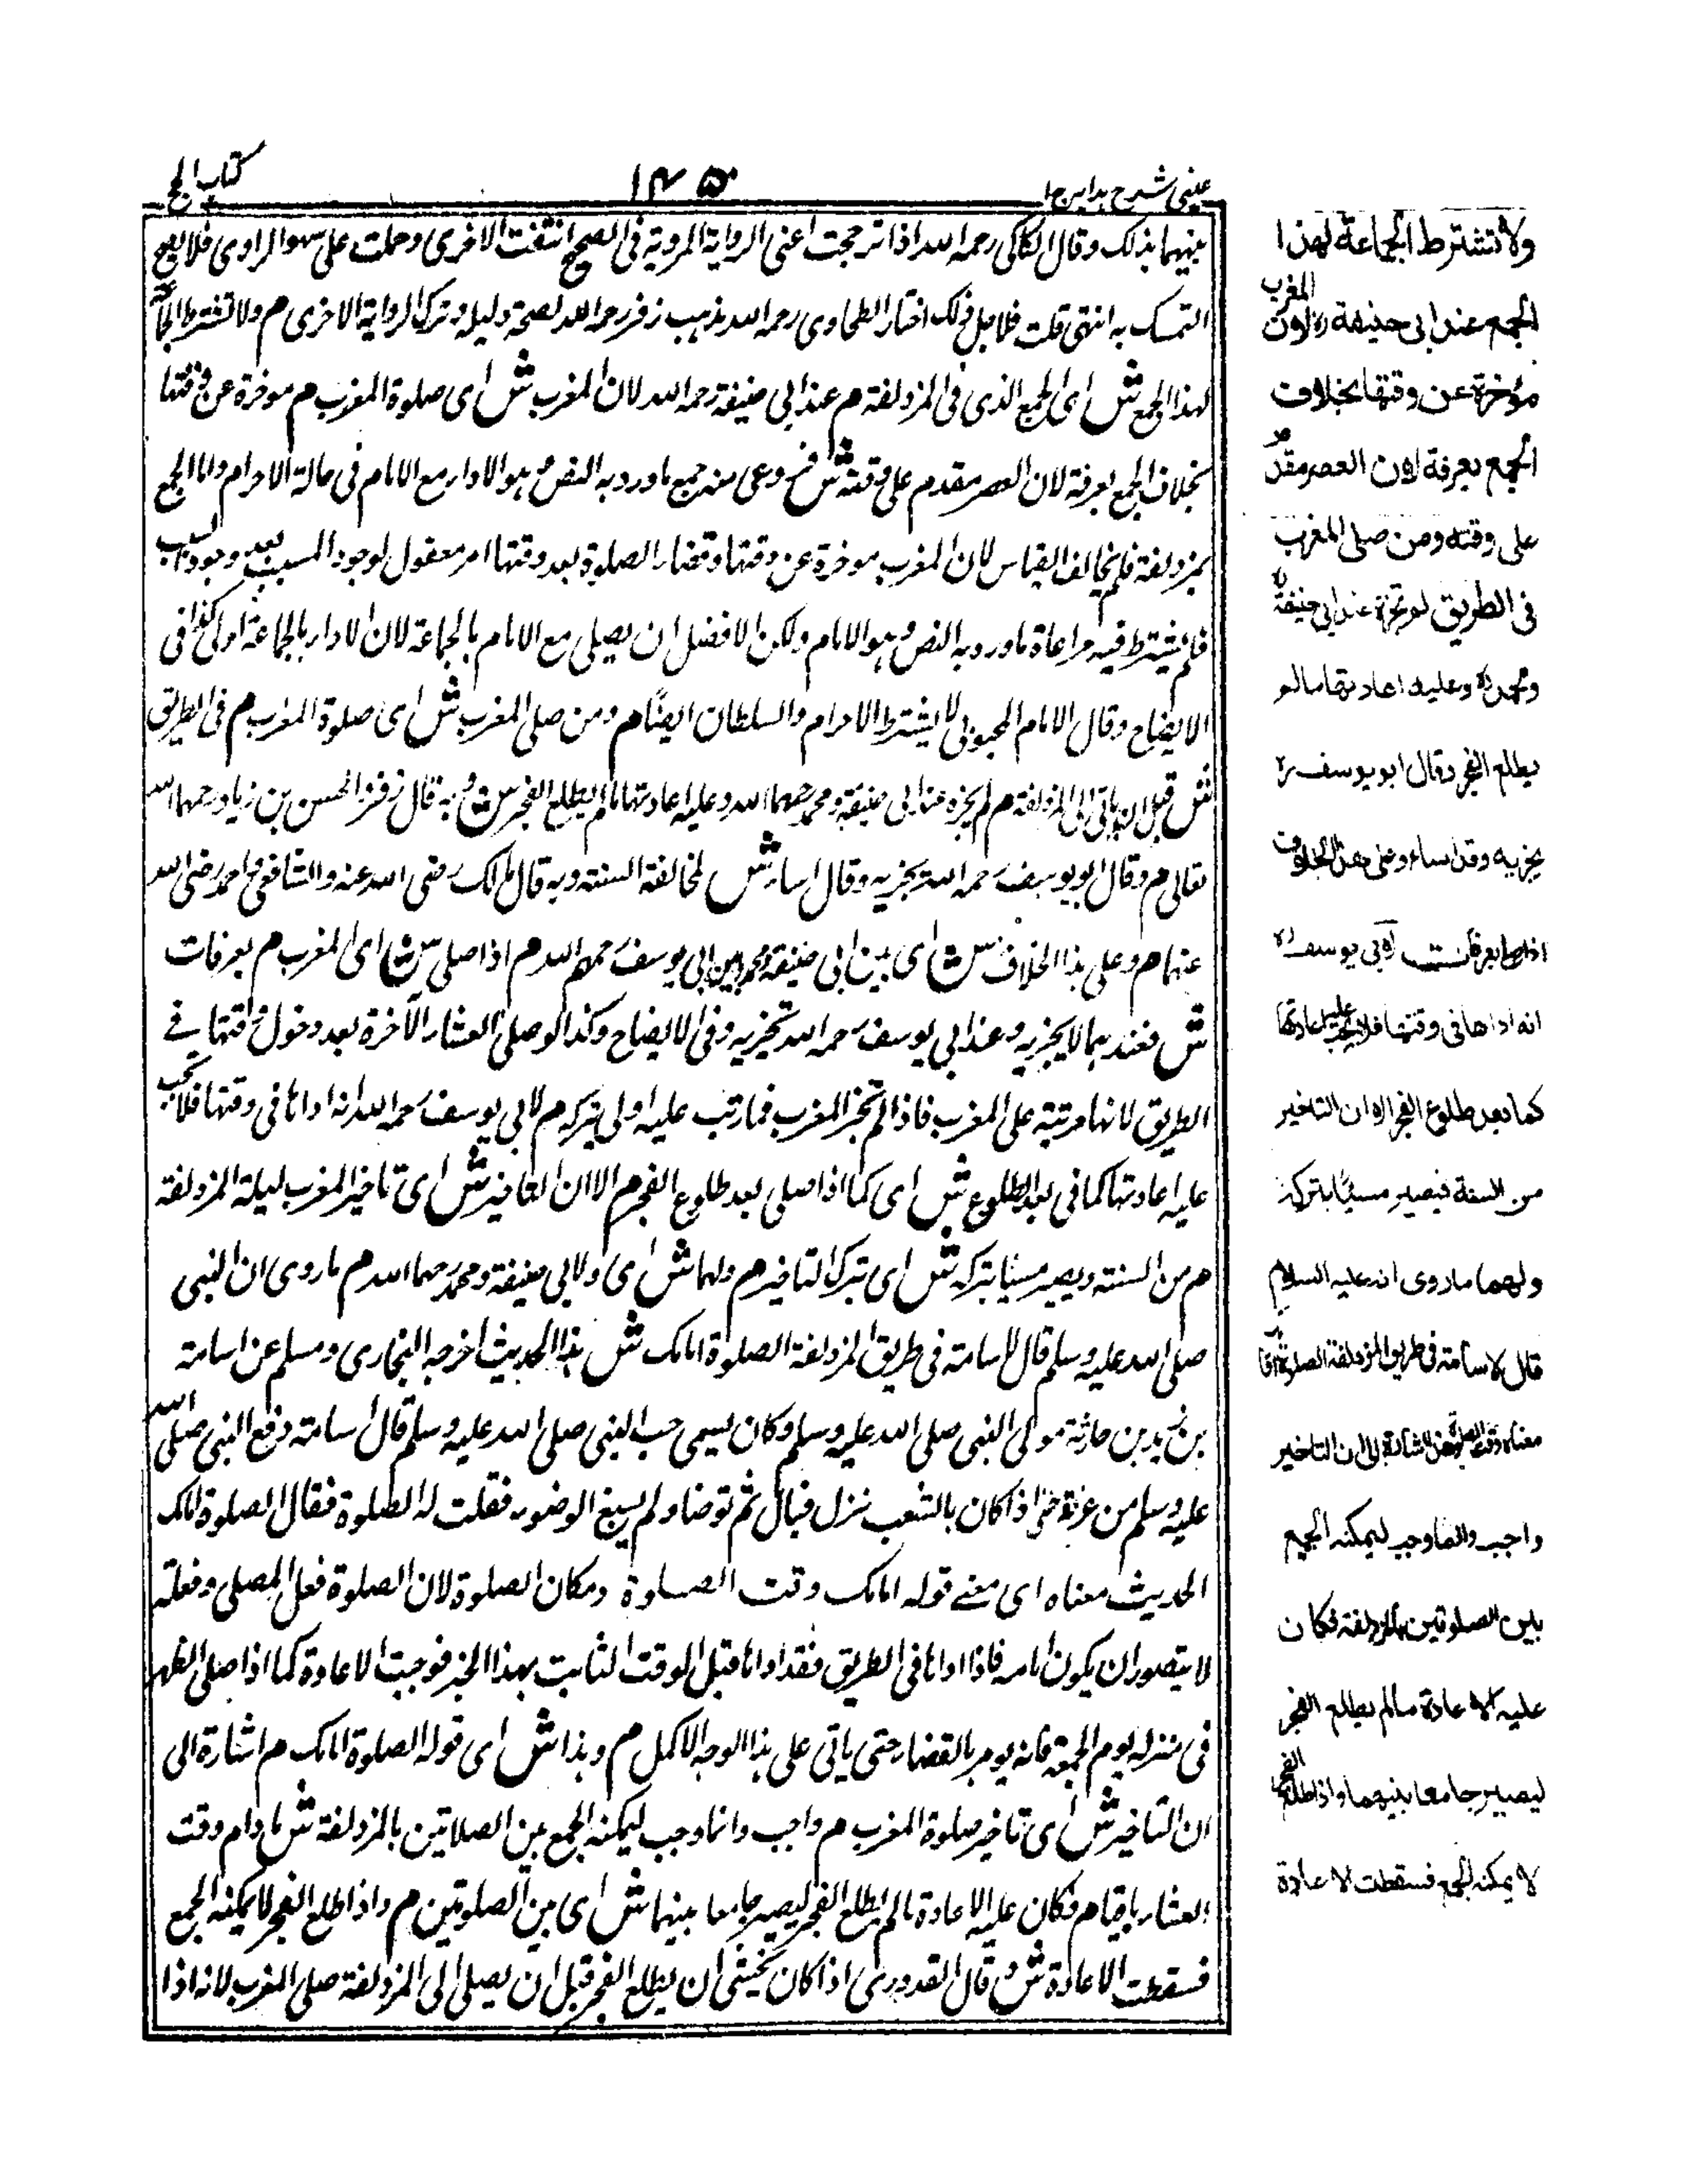 عینی شرح ہدایہ ج ا
۱۴۵۰
کتاب الحج
بینہما بذلک وقال الکاکی رحمہ اللہ اذا ترجحت اعنی الروایة المرویة فی الصحیح انتفت الاخری وحملت علی سہو الراوی فلا یصح
التمسک بہ انتہی قلت فلاجل ذلک اختار الطحاوی رحمہ اللہ مذہب زفر رحمہ اللہ لصحة دلیلہ وترک الروایة الاخری م ولا تشترط الجماعة
لہذا الجمع ش ای الجمع الذی فی المزدلفة م عند ابی حنیفة رحمہ اللہ لان المغرب ش ای صلوة المغرب م موخرة عن وقتہا
بخلاف الجمع بعرفة لان العصر مقدم علی وقتہ ش فروعی منہ جمیع ما ورد بہ النص وہو الاداء مع الامام فی حالة الاحرام واما الجمع
بمزدلفة فلم یخالف القیاس لان المغرب موخرة عن وقتہا وقضاء الصلوة بعد وقتہا امر معقول لوجود المسبب بعد وجود السبب
فلم یشترط فیہ مراعاة ما ورد بہ النص وہو الامام ولکن الافضل ان یصلی مع الامام بالجماعة لان الاداء بالجماعة اولی کذا فی
الایضاح وقال الامام المحبوبی لا یشترط الاحرام والسلطان ایضًا م ومن صلی المغرب ش ای صلوة المغرب م فی الطریق
ش قبل ان یاتی الی المزدلفة م لم یجزہ عند ابی حنیفة ومحمد رحمہما اللہ وعلیہ اعادتہا ما لم یطلع الفجر ش وبہ قال زفر والحسن بن زیاد رحمہما اللہ
تعالی م وقال ابو یوسف رحمہ اللہ یجزیہ وقال اساء ش لمخالفة السنة وبہ قال مالک رضی اللہ عنہ والشافعی واحمد رضی اللہ
عنہما م وعلی ہذا الخلاف ش ای بین ابی حنیفة ومحمد وبین ابی یوسف رحمہم اللہ م اذا صلی ش ای المغرب م بعرفات
ش فعندہما لا یجزیہ وعند ابی یوسف رحمہ اللہ تجزیہ وفی الایضاح وکذا لو صلی العشاء الآخرة بعد دخول وقتہا فے
الطریق لانہا مرتبة علی المغرب فاذا لم تجز المغرب فما رتب علیہ اولی بترکہ م لابی یوسف رحمہ اللہ انہ اداہا فی وقتہا فلا تجب
علیہ اعادتہا کما فی بعد الطلوع ش ای کما اذا صلی بعد طلوع الفجر م الا ان التاخیر ش ای تاخیر المغرب لیلة المزدلفة
م من السنة ویصیر مسیئا بترکہ ش ای بترک التاخیر م ولہما ش ای ولابی حنیفة ومحمد رحمہما اللہ م ما روی ان النبی
صلی اللہ علیہ وسلم قال لاسامة فی طریق المزدلفة الصلوة امامک ش ہذا الحدیث اخرجہ البخاری ومسلم عن اسامة
بن زید بن حارثة مولی النبی صلی اللہ علیہ وسلم وکان یسمی حب النبی صلی اللہ علیہ وسلم قال اسامة دفع النبی صلی اللہ
علیہ وسلم من عرفة حتی اذا کان بالشعب نزل فبال ثم توضا ولم یسبغ الوضوء فقلت لہ الصلوة فقال الصلوة امامک
الحدیث معناہ ای معنے قولہ امامک وقت الصلوة ومکان الصلوة لان الصلوة فعل المصلی وفعلہ
لا یتصور ان یکون امامہ فاذا اداہا فی الطریق فقد اداہا قبل الوقت الثابت بہذا الخبر فوجبت الاعادة کما اذا صلی الظہر
فی منزلہ یوم الجمعة فانہ یومر بالقضاء حتی یاتی علی ہذا الوجہ الاکمل م وہذا ش ای قولہ الصلوة امامک م اشارة الی
ان التاخیر ش ای تاخیر صلوة المغرب م واجب وانما وجب لیمکنہ الجمع بین الصلاتین بالمزدلفة ش ما دام وقت
العشاء باقیا م فکان علیہ الاعادة ما لم یطلع الفجر لیصیر جامعا بینہما ش ای بین الصلوتین م واذا طلع الفجر لا یمکنہ الجمع
فسقطت الاعادة ش وقال القدوری اذا کان یخشی ان یطلع الفجر قبل ان یصل الی المزدلفة صلی المغرب لانہ اذا
ولا تشترط الجماعة لهذا
الجمع عند ابی حنیفة رہ لان المغرب
مؤخرة عن وقتها بخلاف
الجمع بعرفة لان العصر مقدم
علی وقته ومن صلی المغرب
فی الطریق لم تجزہ عند ابی حنیفة رہ
ومحمد رہ وعلیه اعادتها ما لم
یطلع الفجر وقال ابو یوسف رہ
یجزیه وقد اساء وعلی هذا الخلاف
اذا صلی بعرفات لابی یوسف رہ
انه اداها فی وقتها فلا تجب علیه اعادتها
کما بعد طلوع الفجر الا ان التاخیر
من السنة فیصیر مسیئًا بترکه
ولهما ما روی انه علیه السلام
قال لاسامة فی طریق المزدلفة الصلوة امامك
معناه وقت الصلوة وهذا اشارة الی ان التاخیر
واجب وانما وجب لیمکنه الجمع
بین الصلوتین بالمزدلفة فکان
علیه الاعادة ما لم یطلع الفجر
لیصیر جامعا بینهما واذا طلع الفجر
لا یمکنه الجمع فسقطت الاعادة